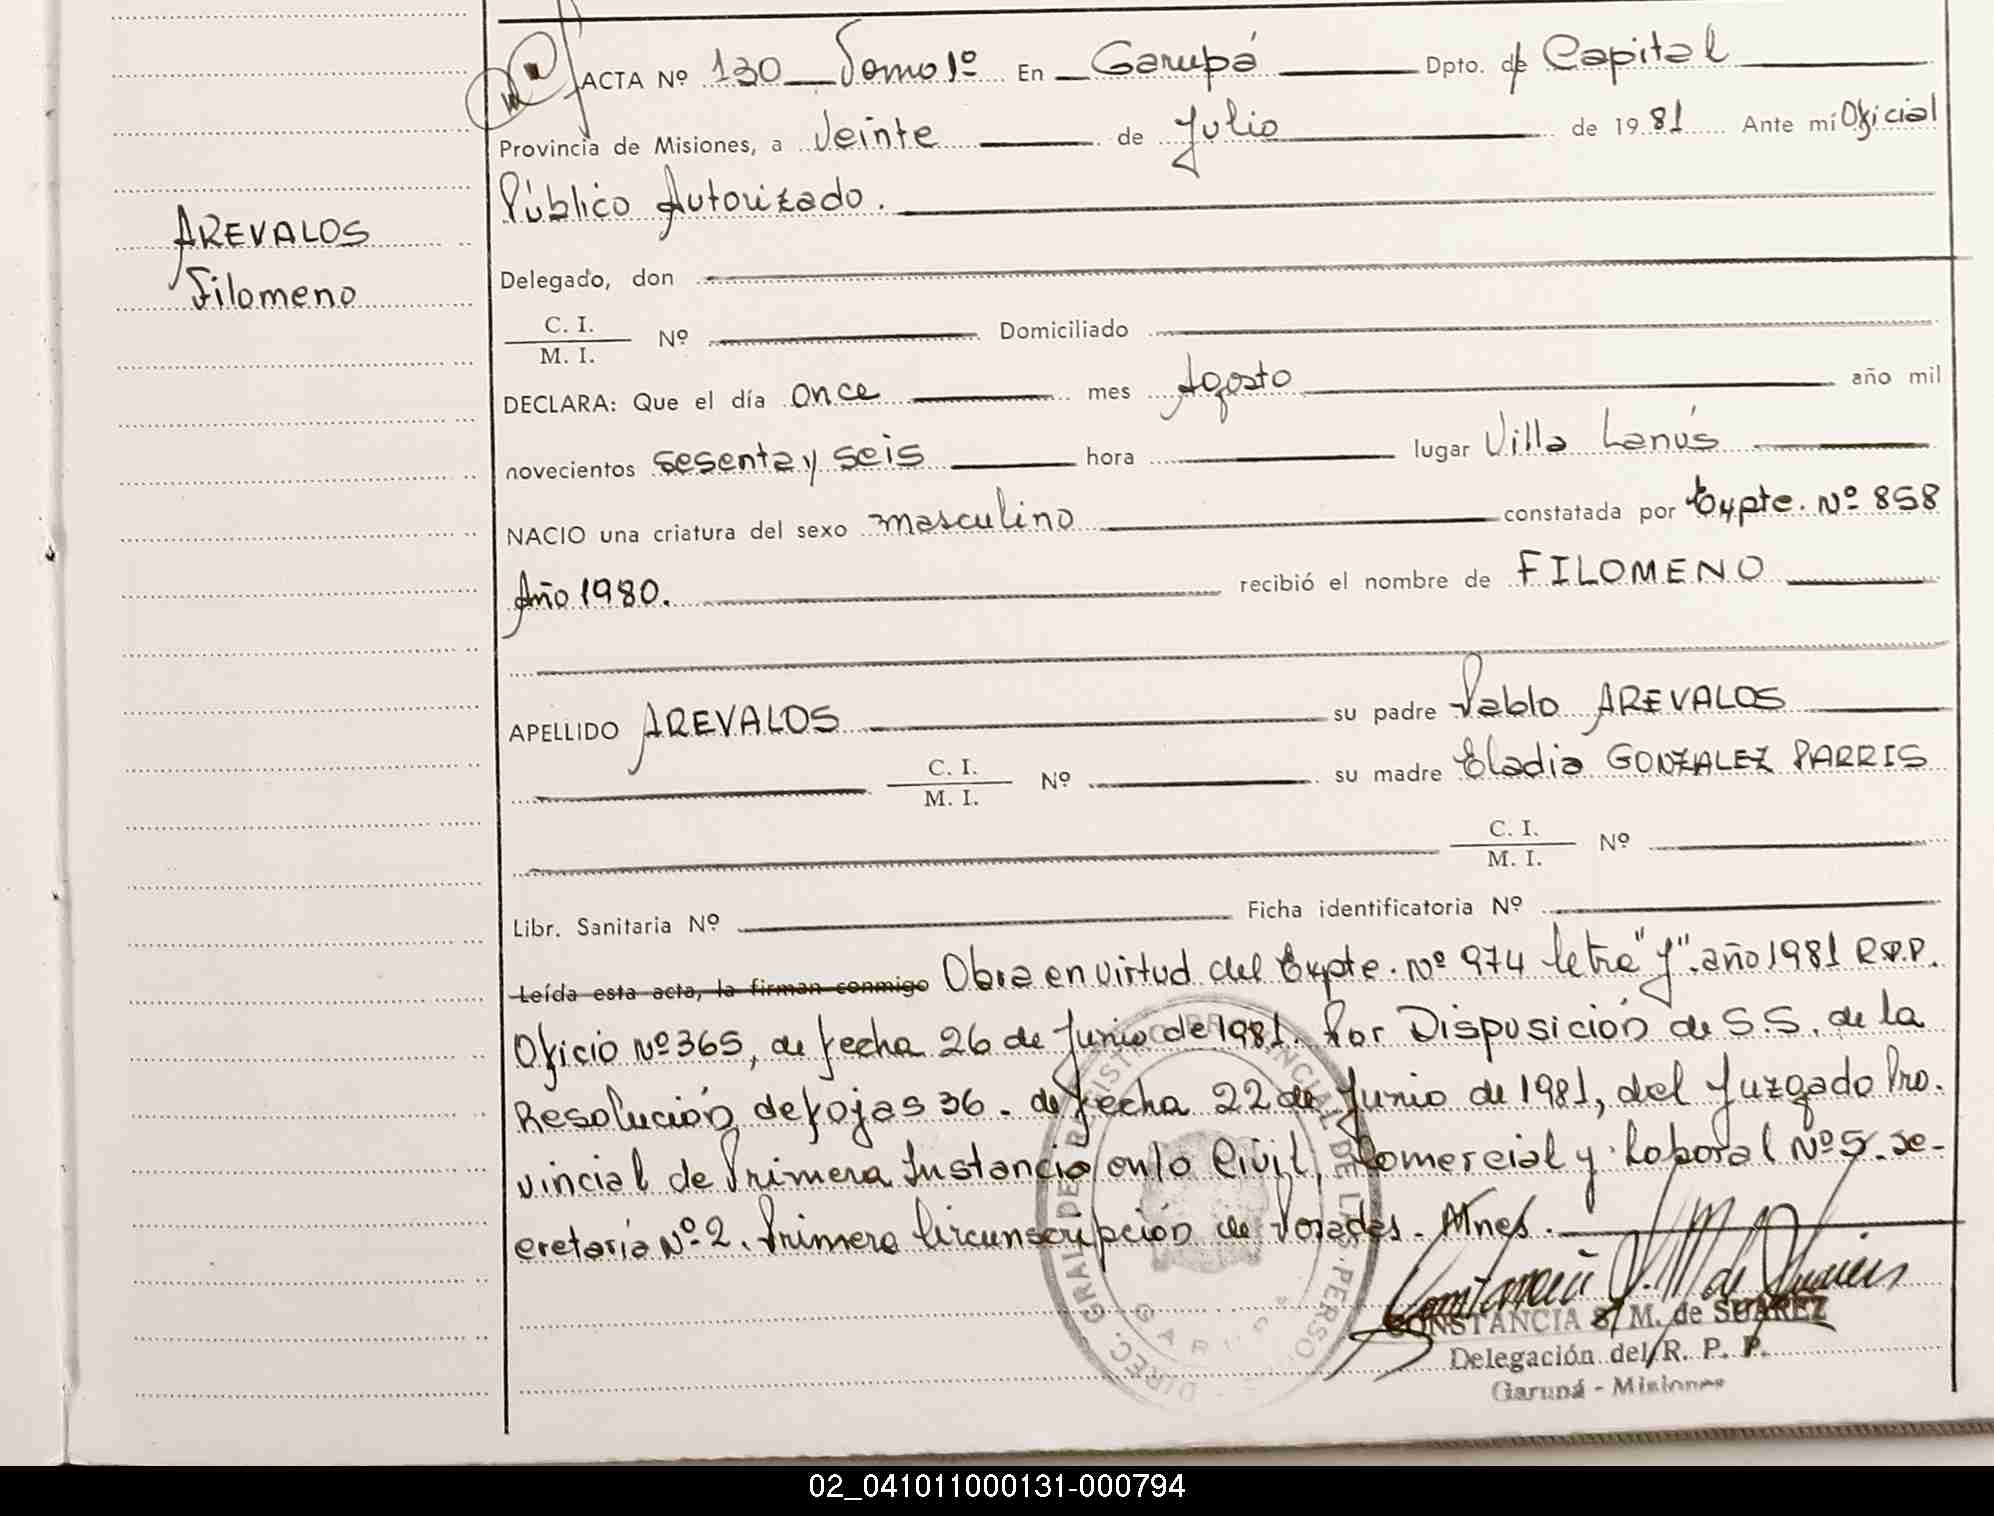 ACTA Nº 130 Tomo 1º En Garupá Dpto. de Capital
Provincia de Misiones, a Veinte de Julio de 1981 Ante mí Oficial
Público Autorizado.
AREVALOS
Filomeno
Delegado, don
C. I.
M. I. Nº Domiciliado
DECLARA: Que el día once mes Agosto año mil
novecientos sesenta y seis hora lugar Villa Lanús
NACIO una criatura del sexo masculino constatada por Expte. Nº 858
Año 1980. recibió el nombre de FILOMENO
APELLIDO AREVALOS su padre Pablo AREVALOS
C. I.
M. I. Nº su madre Eladia GONZALEZ PARRIS
C. I.
M. I. Nº
Libr. Sanitaria Nº Ficha identificatoria Nº
Leída esta acta, la firman conmigo Obra en virtud del Expte. Nº 974 letra "J". año 1981 R.P.P.
Oficio Nº 365, de fecha 26 de Junio de 1981. Por Disposición de S.S. de la
Resolución de fojas 36. de fecha 22 de Junio de 1981, del Juzgado Pro.
vincial de Primera Instancia en lo Civil, Comercial y Laboral Nº 5. Se-
cretaría Nº 2. Primera Circunscripción de Posadas. Mnes.
DIREC. GRAL DE REGISTRO PROVINCIAL DE LAS PERSO
GARUPA
CONSTANCIA S. M. de SUAREZ
Delegación del R. P. P.
Garupá - Misiones
02_041011000131-000794